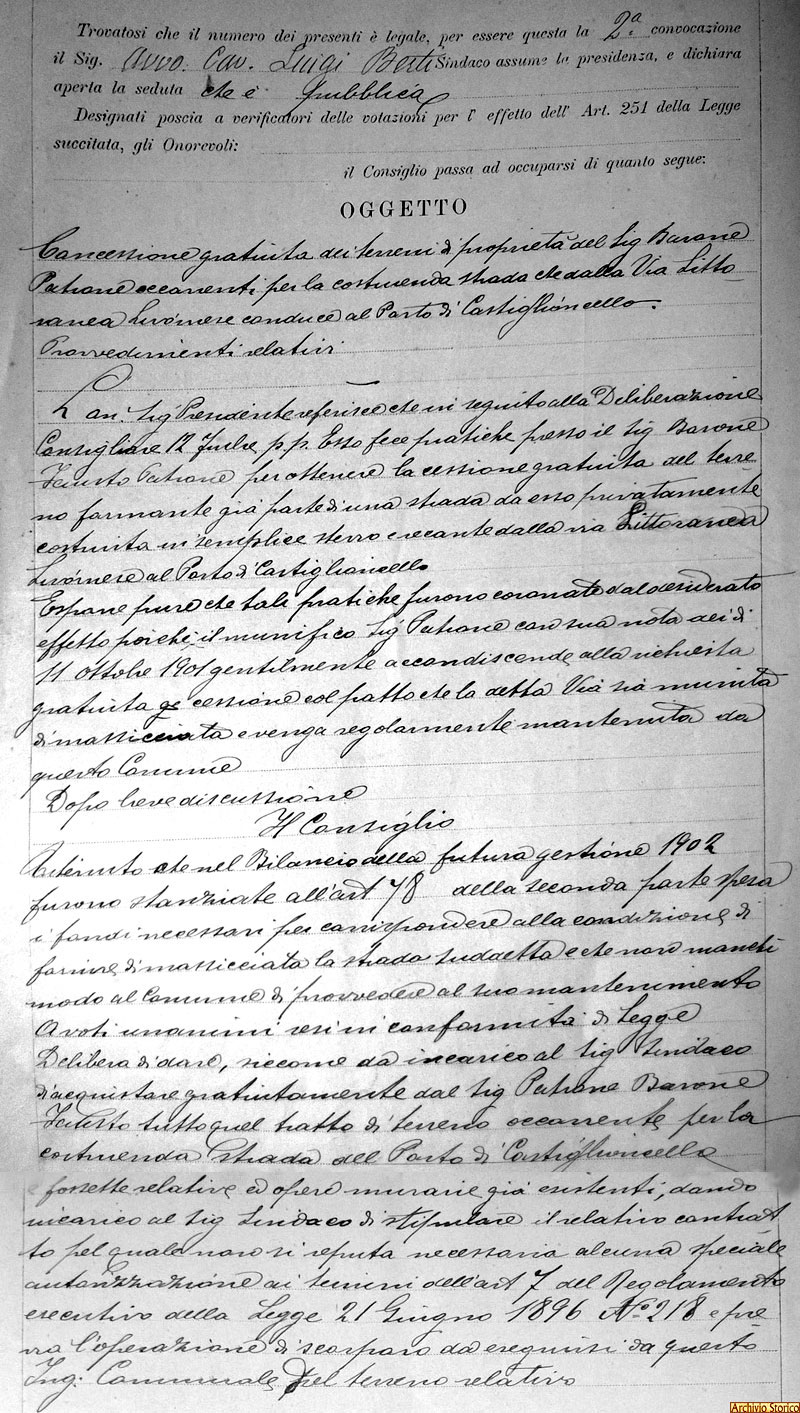 Trovatosi che il numero dei presenti è legale, per essere questa la 2ª convocazione
il Sig. Avvo. Cav. Luigi Berti Sindaco assume la presidenza, e dichiara
aperta la seduta che è pubblica
Designati poscia a verificatori delle votazioni per l' effetto dell' Art. 251 della Legge
succitata, gli Onorevoli:
il Consiglio passa ad occuparsi di quanto segue:
OGGETTO
Concessione gratuita dei terreni di proprietà del Sig Barone
Patrone occorrenti per la costruenda strada che dalla Via Litto-
ranea Livornese conduce al Porto di Castiglioncello.
Provvedimenti relativi
Sig Presidente referisce che in seguito alla Deliberazione
Consigliare 12 p. p. Esso fece pratiche presso il Sig Barone
Fausto Patrone per ottenere la cessione gratuita del terre
no formante già parte di una strada da esso privatamente
costruita in semplice sterro e recante dalla via Littoranea
Livornese al Porto di Castiglioncello
Espone pure che tali pratiche furono coronate dal desiderato
effetto poichè il munifico Sig Patrone con sua nota dei dì
11 ottobre 1901 gentilmente accondiscende alla richiesta
gratuita cessione col patto che la detta Via sia munita
di massicciata e venga regolarmente mantenuta da
questo Comune
Dopo breve discussione
Il Consiglio
Ritenuto che nel Bilancio della futura gestione 1902
furono stanziate all'art 78 della seconda parte spesa
i fondi necessari per corrispondere alla condizione di
fornire di massicciata la strada suddetta e che non manchi
modo al Comune di provvedere al suo mantenimento
A voti unanimi resi in conformità di Legge
Delibera di dare, siccome da incarico al Sig Sindaco
di acquistare gratuitamente dal Sig Patrone Barone
Fausto tutto quel tratto di terreno occorrente per la
costruenda strada del Porto di Castiglioncello
fossette relative ed opere murarie già esistenti, dando
incarico al Sig Sindaco di stipulare il relativo contrat
to pel quale non si reputa necessaria alcuna speciale
autorizzazione ai termini dell'art 7 del Regolamento
esecutivo della Legge 21 Giugno 1896 N° 218 e pre
via l'operazione di scorporo da eseguirsi da questo
Ing. Comunale pel terreno relativo
Archivio Storico